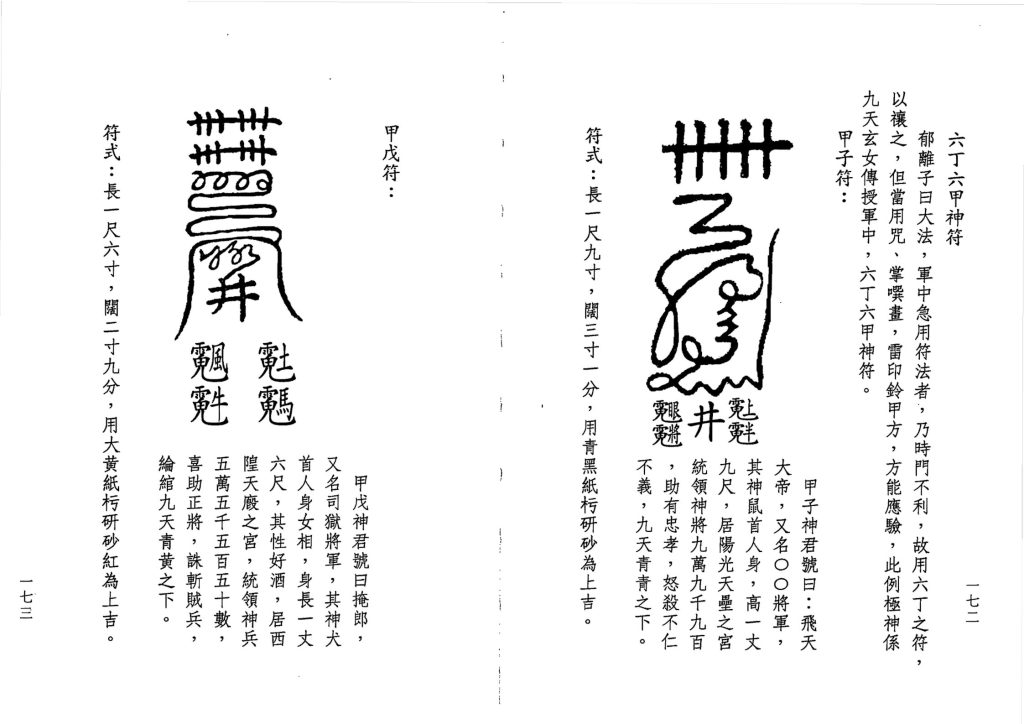 六丁六甲神符
郁離子曰大法，軍中急用符法者，乃時門不利，故用六丁之符，
以禳之，但當用咒、掌噀畫，雷印鈴甲方，方能應驗，此例極神係
九天玄女傳授軍中，六丁六甲神符。
甲子符：
甲子神君號曰：飛天
大帝，又名〇〇將軍，
其神鼠首人身，高一丈
九尺，居陽光天壘之宮
統領神將九萬九千九百
，助有忠孝，怒殺不仁
不義，九天青青之下。
井
符式：長一尺九寸，闊三寸一分，用青黑紙杇研砂為上吉。
一七二
甲戊符：
井
甲戊神君號曰掩郎，
又名司獄將軍，其神犬
首人身女相，身長一丈
六尺，其性好酒，居西
隍天廄之宮，統領神兵
五萬五千五百五十數，
喜助正將，誅斬賊兵，
綸綰九天青黄之下。
符式：長一尺六寸，闊二寸九分，用大黄紙杇研砂紅為上吉。
一七三